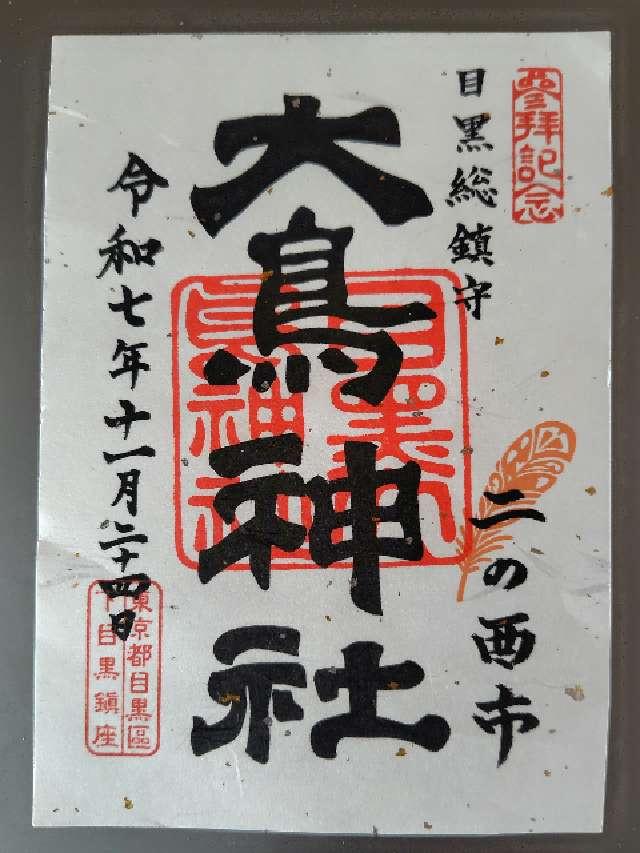 參拜記念
目黒総鎮守
二の酉市
大鳥神社
令和七年十一月二十四日
東京都目黒區
下目黒鎮座